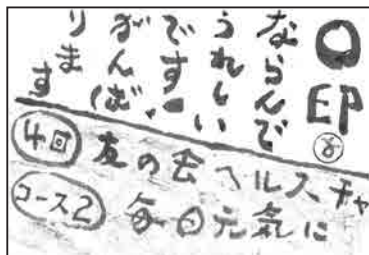 〇印
ならんで
うれしい
です。
がんば
りま
す
4回 友の会ヘルスチャ
コース2 毎日元気に